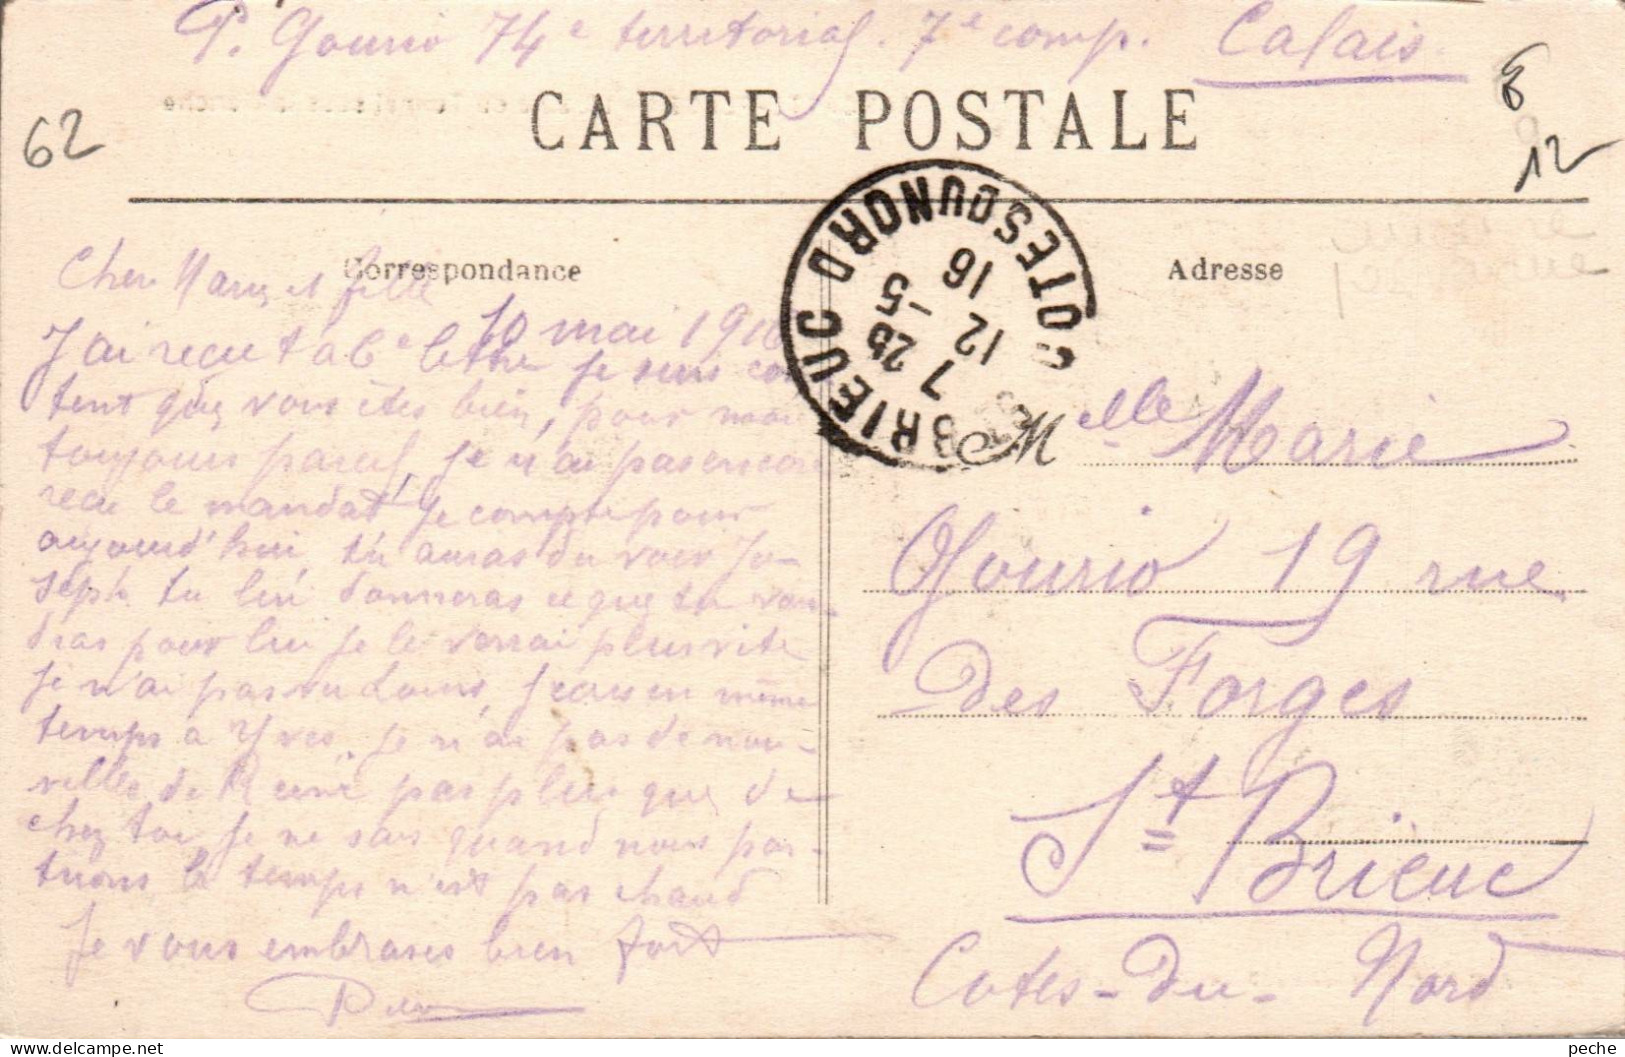 P. Gourio 74e territorial. 7e comp. Calais
CARTE POSTALE
62
12
Correspondance
Adresse
BRIEUC COTES DU NORD
7 25
12 -5
16
10 mai 1916
Cher Marie et fille
J ai recu ta  lettre je suis con
tent que vous êtes bien, pour moi
toujours pareil, je n'ai pas encore
recu le mandat je compte pour
aujourd'hui, tu auras du voir Jo-
seph tu lui donneras ce que tu vou-
dras pour lui je le verrai plus vite
je n'ai pas vu Louis, j ecris en même
temps a Yves, je n'ai pas de nou-
velles de René pas plus que de
chez toi je ne sais quand nous par-
tirons le temps n'est pas chaud
Je vous embrasses bien fort
Mlle Marie
Gourio 19 rue
Des Forges
St Brieuc
Cotes-Du-Nord
peche